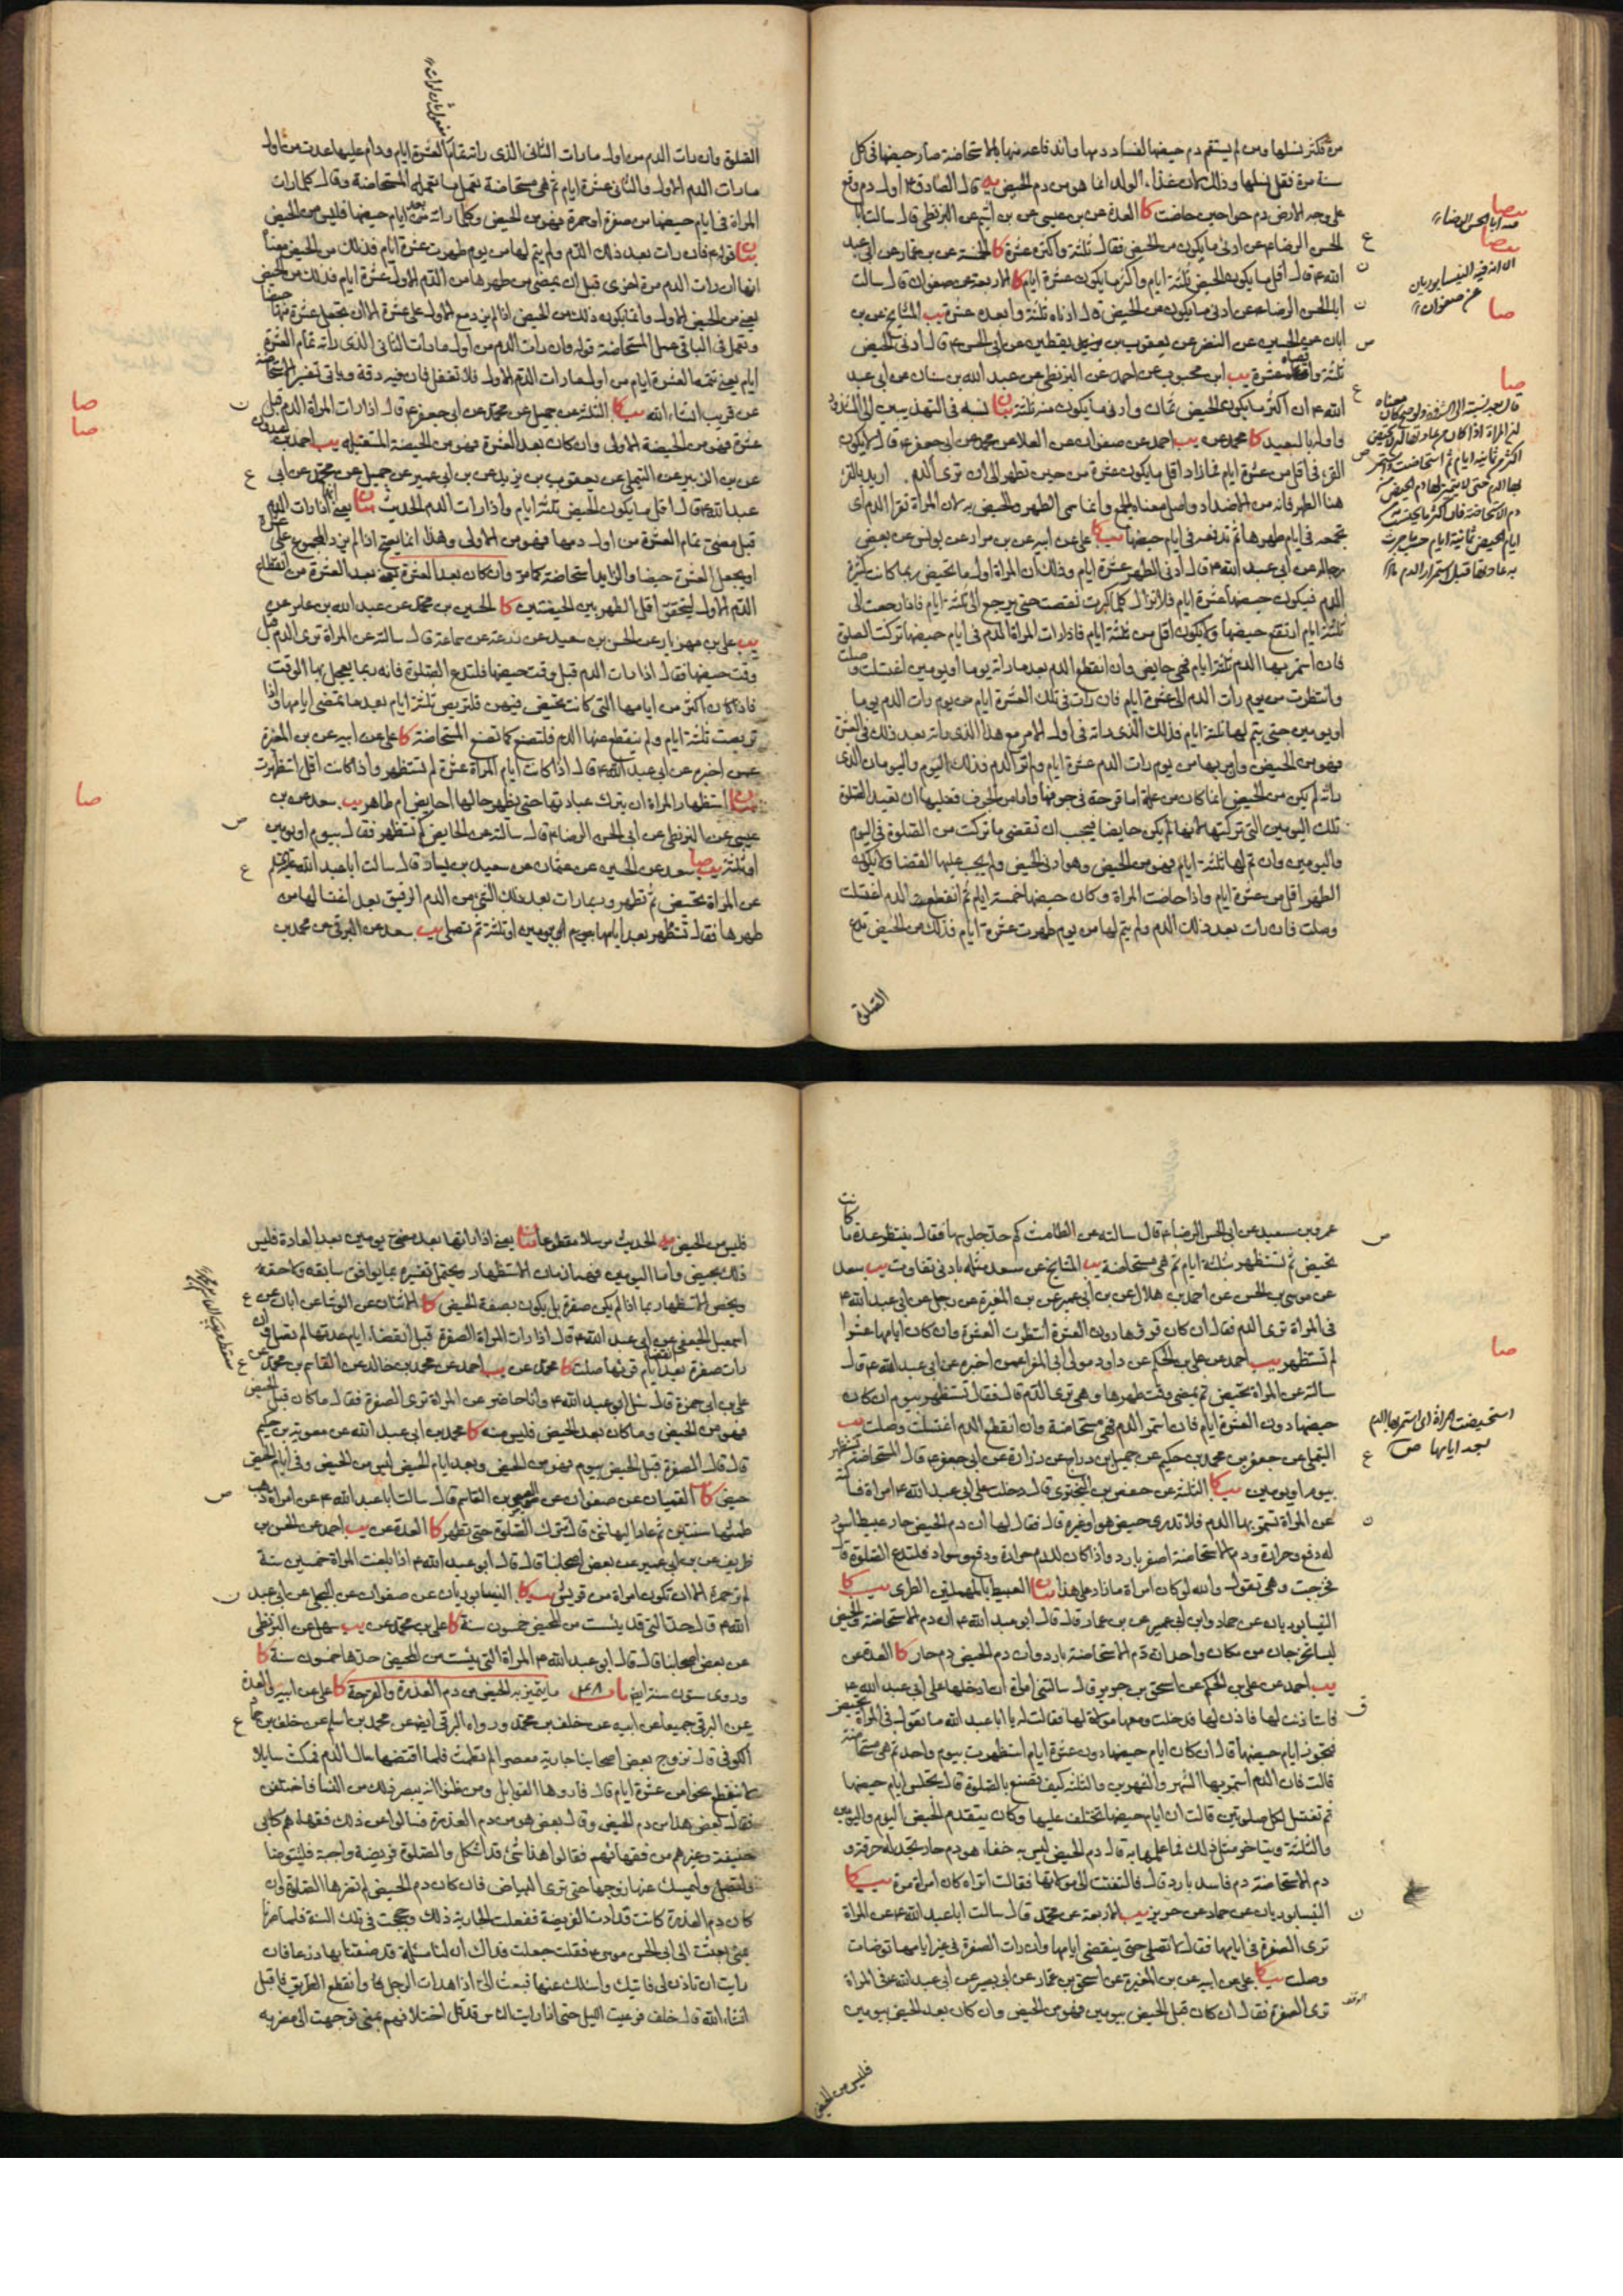 مرة فكثر نسلها ومن لم يستقم دم حيضها لفساد دمها
سنة مرة فقل نسلها وذلك لان غذاء الولد انما هو من دم الحيض يه قال الصادق ع اول دم وقع
على وجه الارض دم حوا حين حاضت كا العدة عن بن عيسى عن بن اشيم عن البزنطي قال سالت ابا
الحسن الرضا ع عن ادنى ما يكون من الحيض فقال ثلثة واكثره عشرة كا الخمسة عن بن عمار عن ابي عبد
الله ع قال اقل ما يكون الحيض ثلثة ايام واكثر ما يكون عشرة ايام كا الاربعة عن صفوان قال سالت
ابا الحسن الرضا ع عن ادنى ما يكون من الحيض قال ادناه ثلثة وابعده عشرة يب المشايخ عن بن
ابان عن الحسين عن النضر عن يعقوب بن يقطين عن ابي الحسن ع قال ادنى الحيض
ثلثة واقصاه عشرة يب ابن محبوب عن احمد عن البزنطي عن عبد الله بن سنان عن ابي عبد
الله ع ان اكثر ما يكون الحيض ثمان وادنى ما يكون منه ثلثة بيان نسبه في التهذيبين الى الشذوذ
واوله بالبعيد كا محمد عن يب احمد عن صفوان عن العلا عن محمد عن ابي جعفر ع قال لا يكون
القرء في اقل من عشرة ايام فما زاد اقل ما يكون عشرة من حين تطهر الى ان ترى الدم
هنا الطهر فانه من الاضداد واصل معناه الجمع وانما سمى الطهر والحيض به لان المراة تقرا الدم اي
تجمعه في ايام طهرها ثم تدفعه في ايام حيضها يب كا علي عن ابيه عن بن مرار عن يونس عن بعض
رجاله عن ابي عبد الله ع قال ادنى الطهر عشرة ايام وذلك ان المراة اول ما تحيض ربما كانت كثيرة
الدم فيكون حيضها عشرة ايام فلا تزال كلما كبرت نقصت حتى يرجع الى ثلثة ايام فاذا رجعت الى
ثلثة ايام ارتفع حيضها ولا يكون اقل من ثلثة ايام فاذا رات المراة الدم في ايام حيضها تركت الصلوة
فان استمر بها الدم ثلثة ايام فهي حايض وان انقطع الدم بعد ما راته يوما او يومين اغتسلت وصلت
وانتظرت من يوم رات الدم الى عشرة ايام فان رات في تلك العشرة ايام من يوم رات الدم يوما
او يومين حتى يتم لها ثلثة ايام فذلك الذي راته في اول الامر مع هذا الذي راته بعد ذلك في العشرة
فهو من الحيض وان مر بها من يوم رات الدم عشرة ايام ولم تر الدم فذلك اليوم واليومان الذي
راته لم يكن من الحيض انما كان من علة اما قرحة في جوفها واما من الجوف فعليها ان تعيد الصلوة
تلك اليومين التي تركتها لانها لم تكن حايضا فيجب ان تقضي ما تركت من الصلوة في اليوم
واليومين وان تم لها ثلثة ايام فهو من الحيض وهو ادنى الحيض ولم يجب عليها القضا ولا يكون
الطهر اقل من عشرة ايام واذا حاضت المراة وكان حيضها خمسة ايام ثم انقطع الدم اغتسلت
وصلت فان رات بعد ذلك الدم ولم يتم لها من يوم طهرت عشرة ايام فذلك من الحيض تدع
الصلوة
الصلوة وان رات الدم من اول ما رات الثاني الذي راته تمام العشرة ايام ودام عليها عدت من اول
ما رات الدم الاول والثاني عشرة ايام ثم هي مستحاضة تعمل ما تعمله المستحاضة وقال كلما رات
المراة في ايام حيضها من صفرة او حمرة فهو من الحيض وكلما راته بعد ايام حيضها فليس من الحيض
بيان قوله فان رات بعد ذلك الدم ولم يتم لها من يوم طهرت عشرة ايام فذلك من الحيض معناه
انها ان رات الدم مرة اخرى قبل ان يمضي من طهرها من الدم الاول عشرة ايام فذلك من الحيض
ويعمل في الباقي عمل المستحاضة قوله وان رات الدم من اول ما رات الثاني الذي راته تمام العشرة
ايام يعني تتمة العشرة ايام من اول ما رات الدم الاول فلا تغفل فان فيه دقة وياتي تفسير الاستحاضة
عن قريب انشاء الله يب كا الثلثة عن جميل عن محمد عن ابي جعفر ع قال اذا رات المراة الدم قبل
عشرة فهو من الحيضة الاولى وان كان بعد العشرة فهو من الحيضة المستقبلة يب احمد بن عبدون
عن بن الزبير عن التيملي عن يعقوب بن يزيد عن بن ابي عمير عن جميل عن محمد عن ابي
عبد الله ع قال اقل ما يكون الحيض ثلثة ايام واذا رات الدم الحديث بيان يعني اذا رات الدم
قبل مضى تمام العشرة من اول دمها فهو من الاولى وهذا انما يصح اذا لم يزد المجموع على عشرة
الدم الاول ليتحقق اقل الطهر بين الحيضتين كا الحسين بن محمد عن عبد الله بن عامر عن
يب علي بن مهزيار عن الحسن بن سعيد عن زرعة عن سماعة قال سالته عن المراة ترى الدم قبل
وقت حيضها فقال اذا رات الدم قبل وقت حيضها فلتدع الصلوة فانه ربما يعجل بها الوقت
فاذا كان اكثر من ايامها التي كانت تحيض فيهن فلتربص ثلثة ايام بعد ما تمضي ايامها فاذا
تربصت ثلثة ايام ولم ينقطع عنها الدم فلتصنع كما تصنع المستحاضة كا علي عن ابيه عن بن المغيرة
عمن اخبره عن ابي عبد الله ع قال اذا كانت ايام المراة عشرة لم تستظهر واذا كانت اقل استظهرت
بيان استظهار المراة ان يترك عبادتها حتى يظهر حالها احايض ام طاهر يب سعد عن بن
عيسى عن البزنطي عن ابي الحسن الرضا ع قال سالته عن الحايض كم تستظهر فقال بيوم او يومين
او ثلثة يب صا سعد عن الحسين عن عثمان عن سعيد بن يسار قال سالت ابا عبد الله ع
عن المراة تحيض ثم تطهر وربما رات بعد ذلك الشيء من الدم الرقيق بعد اغتسالها من
طهرها فقال تستظهر بعد ايامها بيوم او يومين او ثلثة ثم تصلي يب سعد عن البرقي عن محمد بن
عمرو بن سعيد عن ابي الحسن الرضا ع قال سالته عن الطامث كم حد جلوسها فقال ينتظر عدة ما كانت
تحيض ثم تستظهر بثلثة ايام ثم هي مستحاضة يب المشايخ عن سعد مثله بادنى تفاوت يب سعد
عن موسى بن الحسن عن احمد بن هلال عن بن ابي عمير عن بن المغيرة عن رجل عن ابي عبد الله ع
في المراة ترى الدم فقال ان كان قروها دون العشرة انتظرت العشرة وان كان ايامها عشرا
لم تستظهر يب احمد عن علي بن الحكم عن داود مولى ابي المغرا عمن اخبره عن ابي عبد الله ع قال
سالته عن المراة تحيض ثم يمضي وقت طهرها وهي ترى الدم قال فقال تستظهر بيوم ان كان
حيضها دون العشرة ايام فان استمر الدم فهي مستحاضة وان انقطع الدم اغتسلت وصلت يب
التيملي عن جعفر بن محمد بن حكيم عن جميل بن دراج عن زرارة عن ابي جعفر ع قال المستحاضة تستظهر
بيوم او يومين يب كا الثلثة عن حفص بن البختري قال دخلت على ابي عبد الله ع امراة فسالته
عن المراة تستمر بها الدم فلا تدري حيض هو او غيره قال فقال لها ان دم الحيض حار عبيط اسود
له دفع وحرارة ودم الاستحاضة اصفر بارد فاذا كان للدم حرارة ودفع وسواد فلتدع الصلوة قال
فخرجت وهي تقول والله لو كان امراة ما زاد على هذا بيان العبيط بالمهملتين الطري يب كا
النيسابوريان عن حماد وابن ابي عمير عن بن عمار قال قال ابو عبد الله ع ان دم الاستحاضة والحيض
ليسا يخرجان من مكان واحد ان دم الاستحاضة بارد وان دم الحيض دم حار كا العدة عن
يب احمد عن علي بن الحكم عن اسحق بن جرير قال سالتني امراة ان ادخلها على ابي عبد الله ع
فاستاذنت لها فاذن لها فدخلت ومعها مولاة لها فقالت له يا ابا عبد الله ما تقول في المراة تحيض
فتجوز ايام حيضها قال ان كان ايام حيضها دون عشرة ايام استظهرت بيوم واحد ثم هي مستحاضة
قالت فان الدم استمر بها الشهر والشهرين والثلثة كيف تصنع بالصلوة قال تجلس ايام حيضها
ثم تغتسل لكل صلوتين قالت ان ايام حيضها تختلف عليها وكان يتقدم الحيض اليوم واليومين
والثلثة ويتاخر مثل ذلك فما علمها به قال دم الحيض ليس به خفاء هو دم حار تجد له حرقة و
دم الاستحاضة دم فاسد بارد قال فالتفتت الى مولاتها فقالت اتراه كان امراة مرة يب كا
النيسابوريان عن حماد عن حريز يب الاربعة عن محمد قال سالت ابا عبد الله ع عن المراة
ترى الصفرة في ايامها فقال لا تصلي حتى ينقضي ايامها وان رات الصفرة في غير ايامها توضات
وصلت يب كا علي عن ابيه عن بن المغيرة عن اسحق بن عمار عن ابي بصير عن ابي عبد الله ع في المراة
ترى الصفرة فقال ان كان قبل الحيض بيومين فهو من الحيض وان كان بعد الحيض بيومين
فليس من الحيض
فليس من الحيض يه الحديث مرسلا مقطوعا بيان يعني اذا راتها بعد مضي يومين بعد العادة فليس
ذلك بحيض واما اليومين فهما زمان الاستظهار ويحتمل تفسيره بما يوافق سابقه ولاحقه
ويخص الاستظهار بما اذا لم يكن صفرة بل يكون بصفة الحيض كا الاثنان عن الوشا عن ابان عن
اسمعيل الجعفي عن ابي عبد الله ع قال اذا رات المراة الصفرة قبل انقضاء ايام عدتها لم تصل وان
رات صفرة بعد انقضاء ايام قروئها صلت كا محمد عن يب احمد عن محمد بن خالد عن القاسم بن محمد عن
علي بن ابي حمزة قال سئل ابو عبد الله ع وانا حاضر عن المراة ترى الصفرة فقال ما كان قبل الحيض
فهو من الحيض وما كان بعد الحيض فليس منه كا محمد بن ابي عبد الله عن معوية بن حكيم
قال قال الصفرة قبل الحيض بيوم فهو من الحيض وبعد ايام الحيض ليس من الحيض وفي ايام الحيض
حيض كا القميان عن صفوان عن العيص بن القاسم قال سالت ابا عبد الله ع عن امراة ذهب
طمثها سنتين ثم عاد اليها شيء قال تترك الصلوة حتى تطهر كا العدة عن يب احمد عن الحسن بن
ظريف عن بن ابي عمير عن بعض اصحابنا قال قال ابو عبد الله ع اذا بلغت المراة خمسين سنة
لم تر حمرة الا ان تكون امراة من قريش يب كا النيسابوريان عن صفوان عن البجلي عن ابي عبد
الله ع قال حد التي قد يئست من المحيض خمسون سنة كا علي بن محمد عن يب سهل عن البزنطي
عن بعض اصحابنا قال قال ابو عبد الله ع المراة التي يئست من المحيض حدها خمسون سنة كا
وروى ستون سنة ايضا باب ٤٨ ما يتميز به الحيض من دم العذرة والقرحة كا علي عن ابيه والعدة
عن البرقي جميعا عن ابيه عن خلف بن محمد ورواه البرقي ايضا عن محمد بن اسلم عن خلف بن حماد
الكوفي قال تزوج بعض اصحابنا جارية معصرا لم تطمث فلما اقتضها سال الدم فمكث سايلا
لا ينقطع نحوا من عشرة ايام قال فاروها القوابل ومن ظنوا انه يبصر ذلك من النسا فاختلفن
فقال بعض هذا من دم الحيض وقال بعض هو من دم العذرة فسالوا عن ذلك فقهاءهم كابي
حنيفة وغيرهم من فقهائهم فقالوا هذا شيء قد اشكل والصلوة فريضة واجبة فلتتوضا
ولتصل وليمسك عنها زوجها حتى ترى البياض فان كان دم الحيض لم تضرها الصلوة وان
كان دم العذرة كانت قد ادت الفريضة ففعلت الجارية ذلك وحججت في تلك السنة فلما صرنا
بمنى بعثت الى ابي الحسن موسى ع فقلت جعلت فداك ان لنا مسئلة قد ضقنا بها ذرعا فان
رايت ان تاذن لي فاتيك واسئلك عنها فبعث الي اذا هدات الرجل وانقطع الطريق فاقبل
انشاء الله قال خلف فرعيت الليل حتى اذا رايت الناس قد قل اختلافهم بمنى توجهت الى مضربه